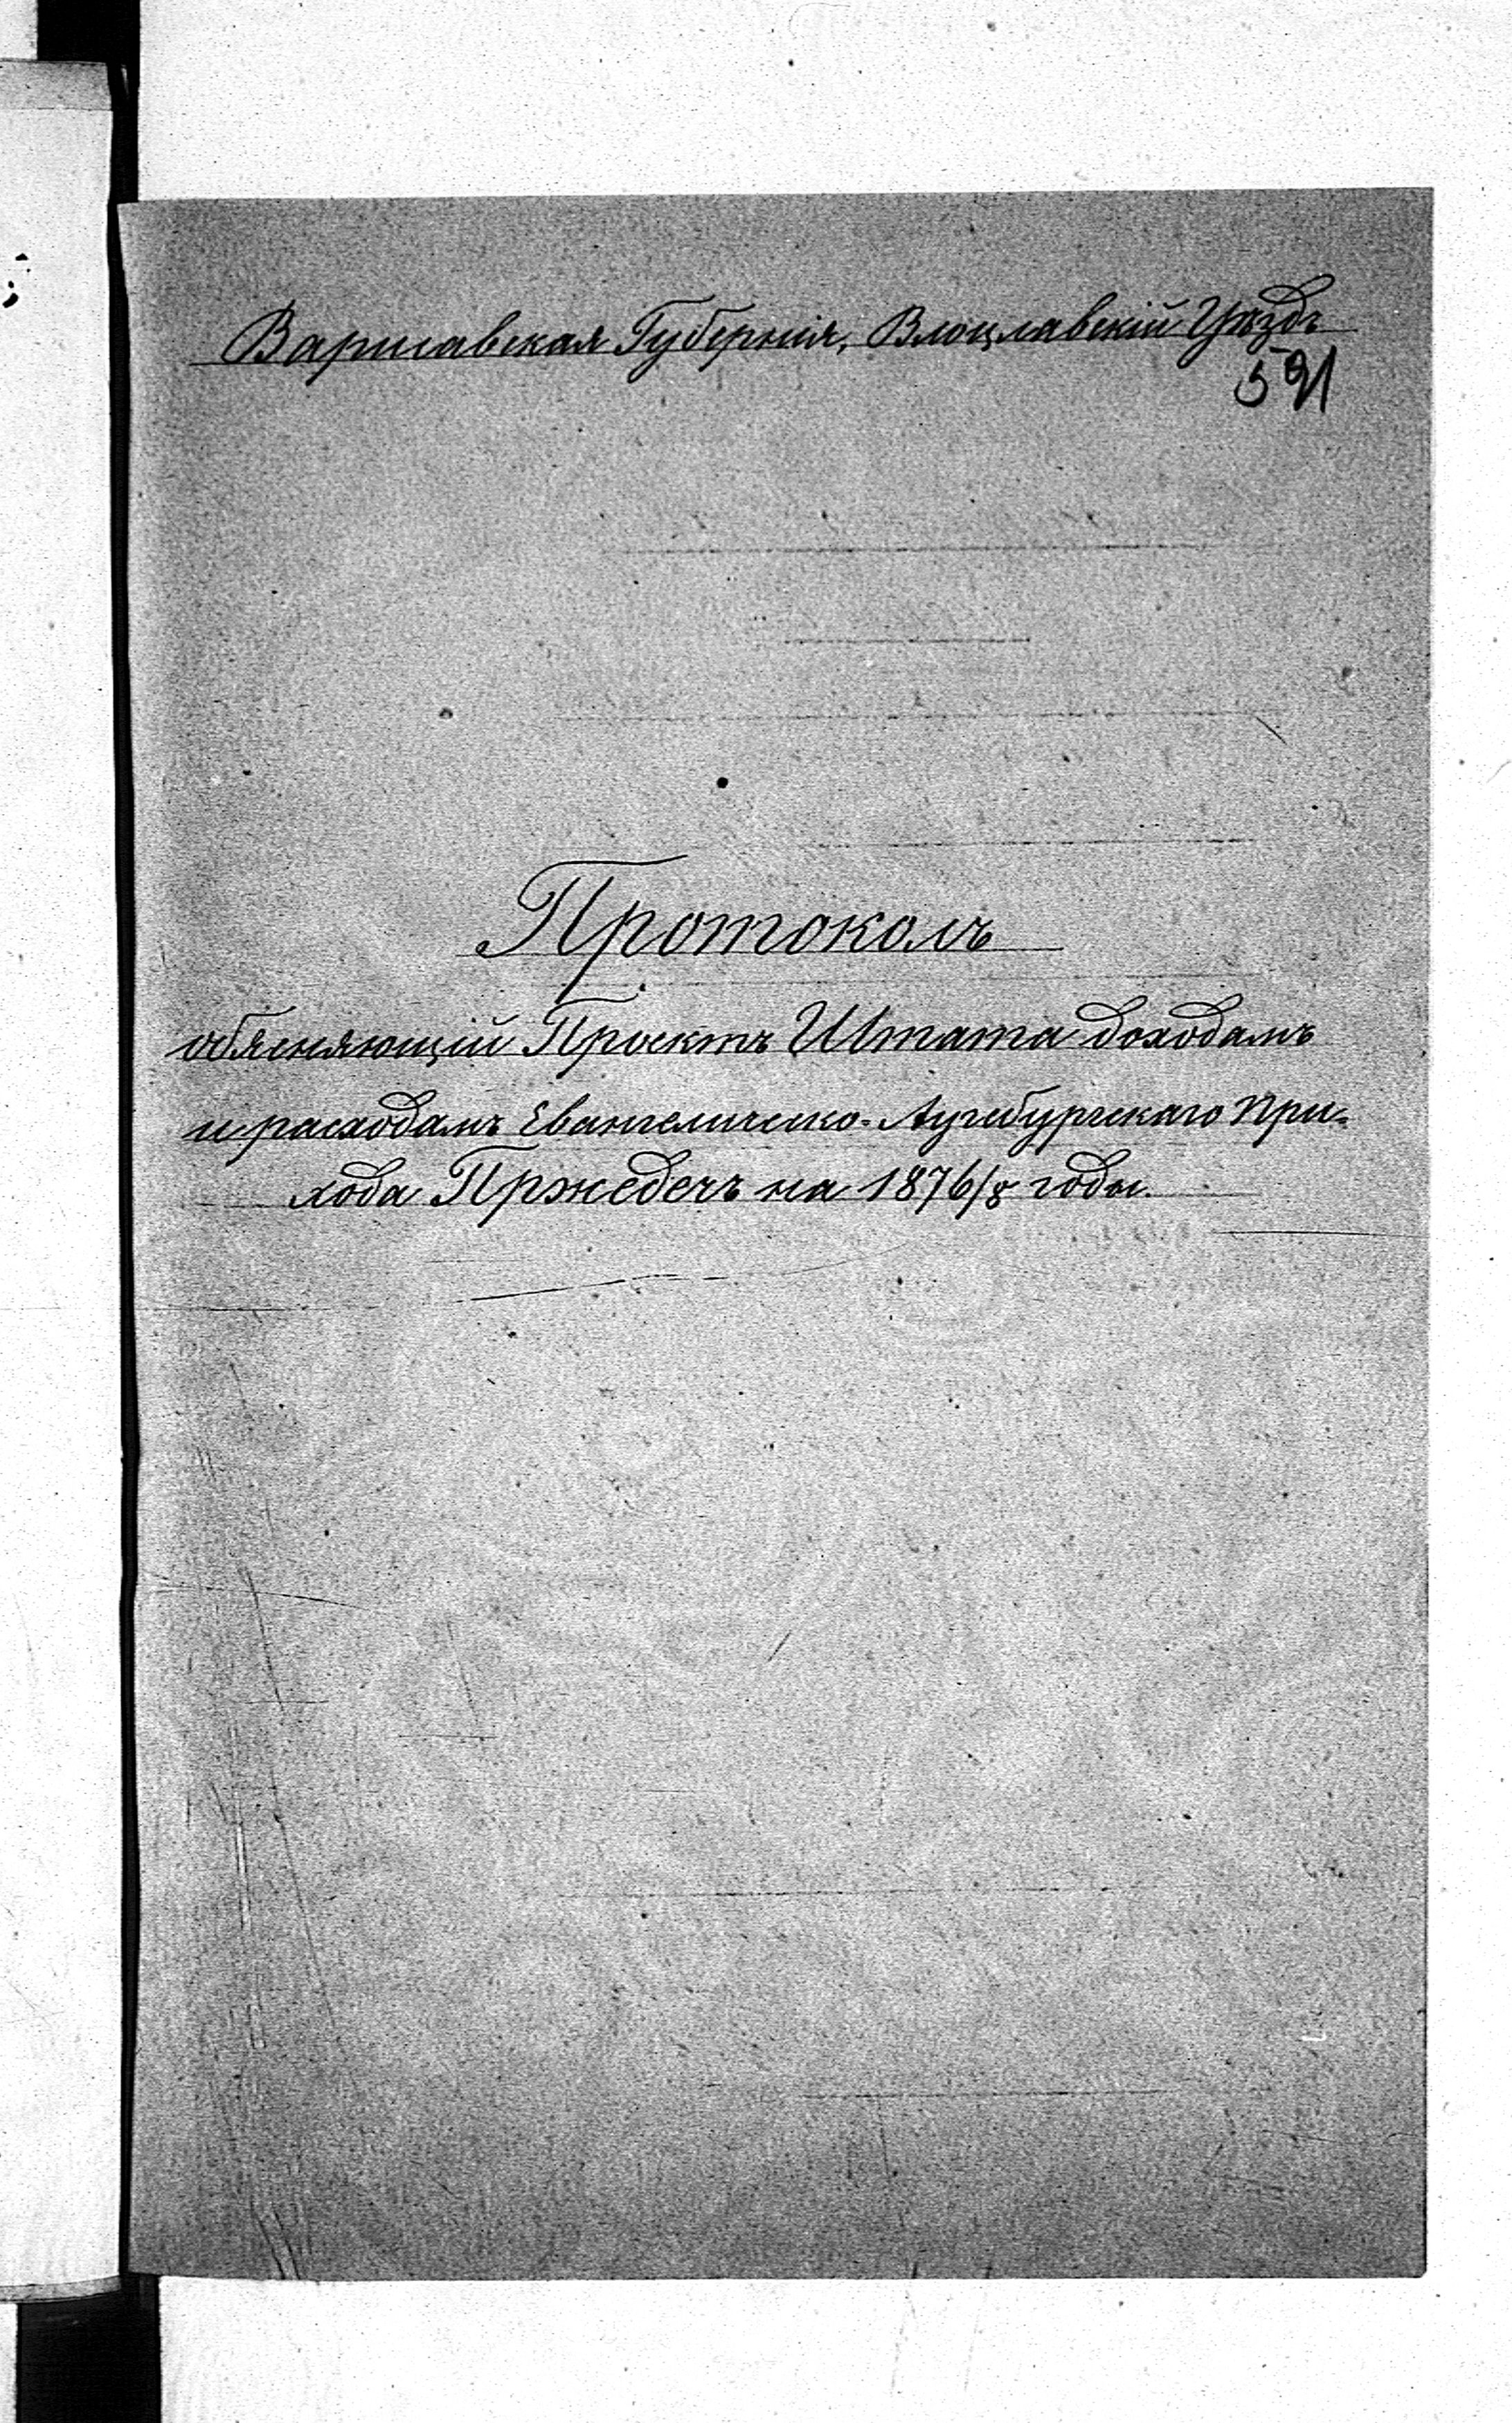 Варшавская Губернія, Влоцлавскій Уѣздъ
591
Протоколъ
обясняющій Проектъ Штата доходамъ
и расходамъ Евангелическо-Аугсбургскаго При-
хода Пржедечъ на 1876/8 годы.